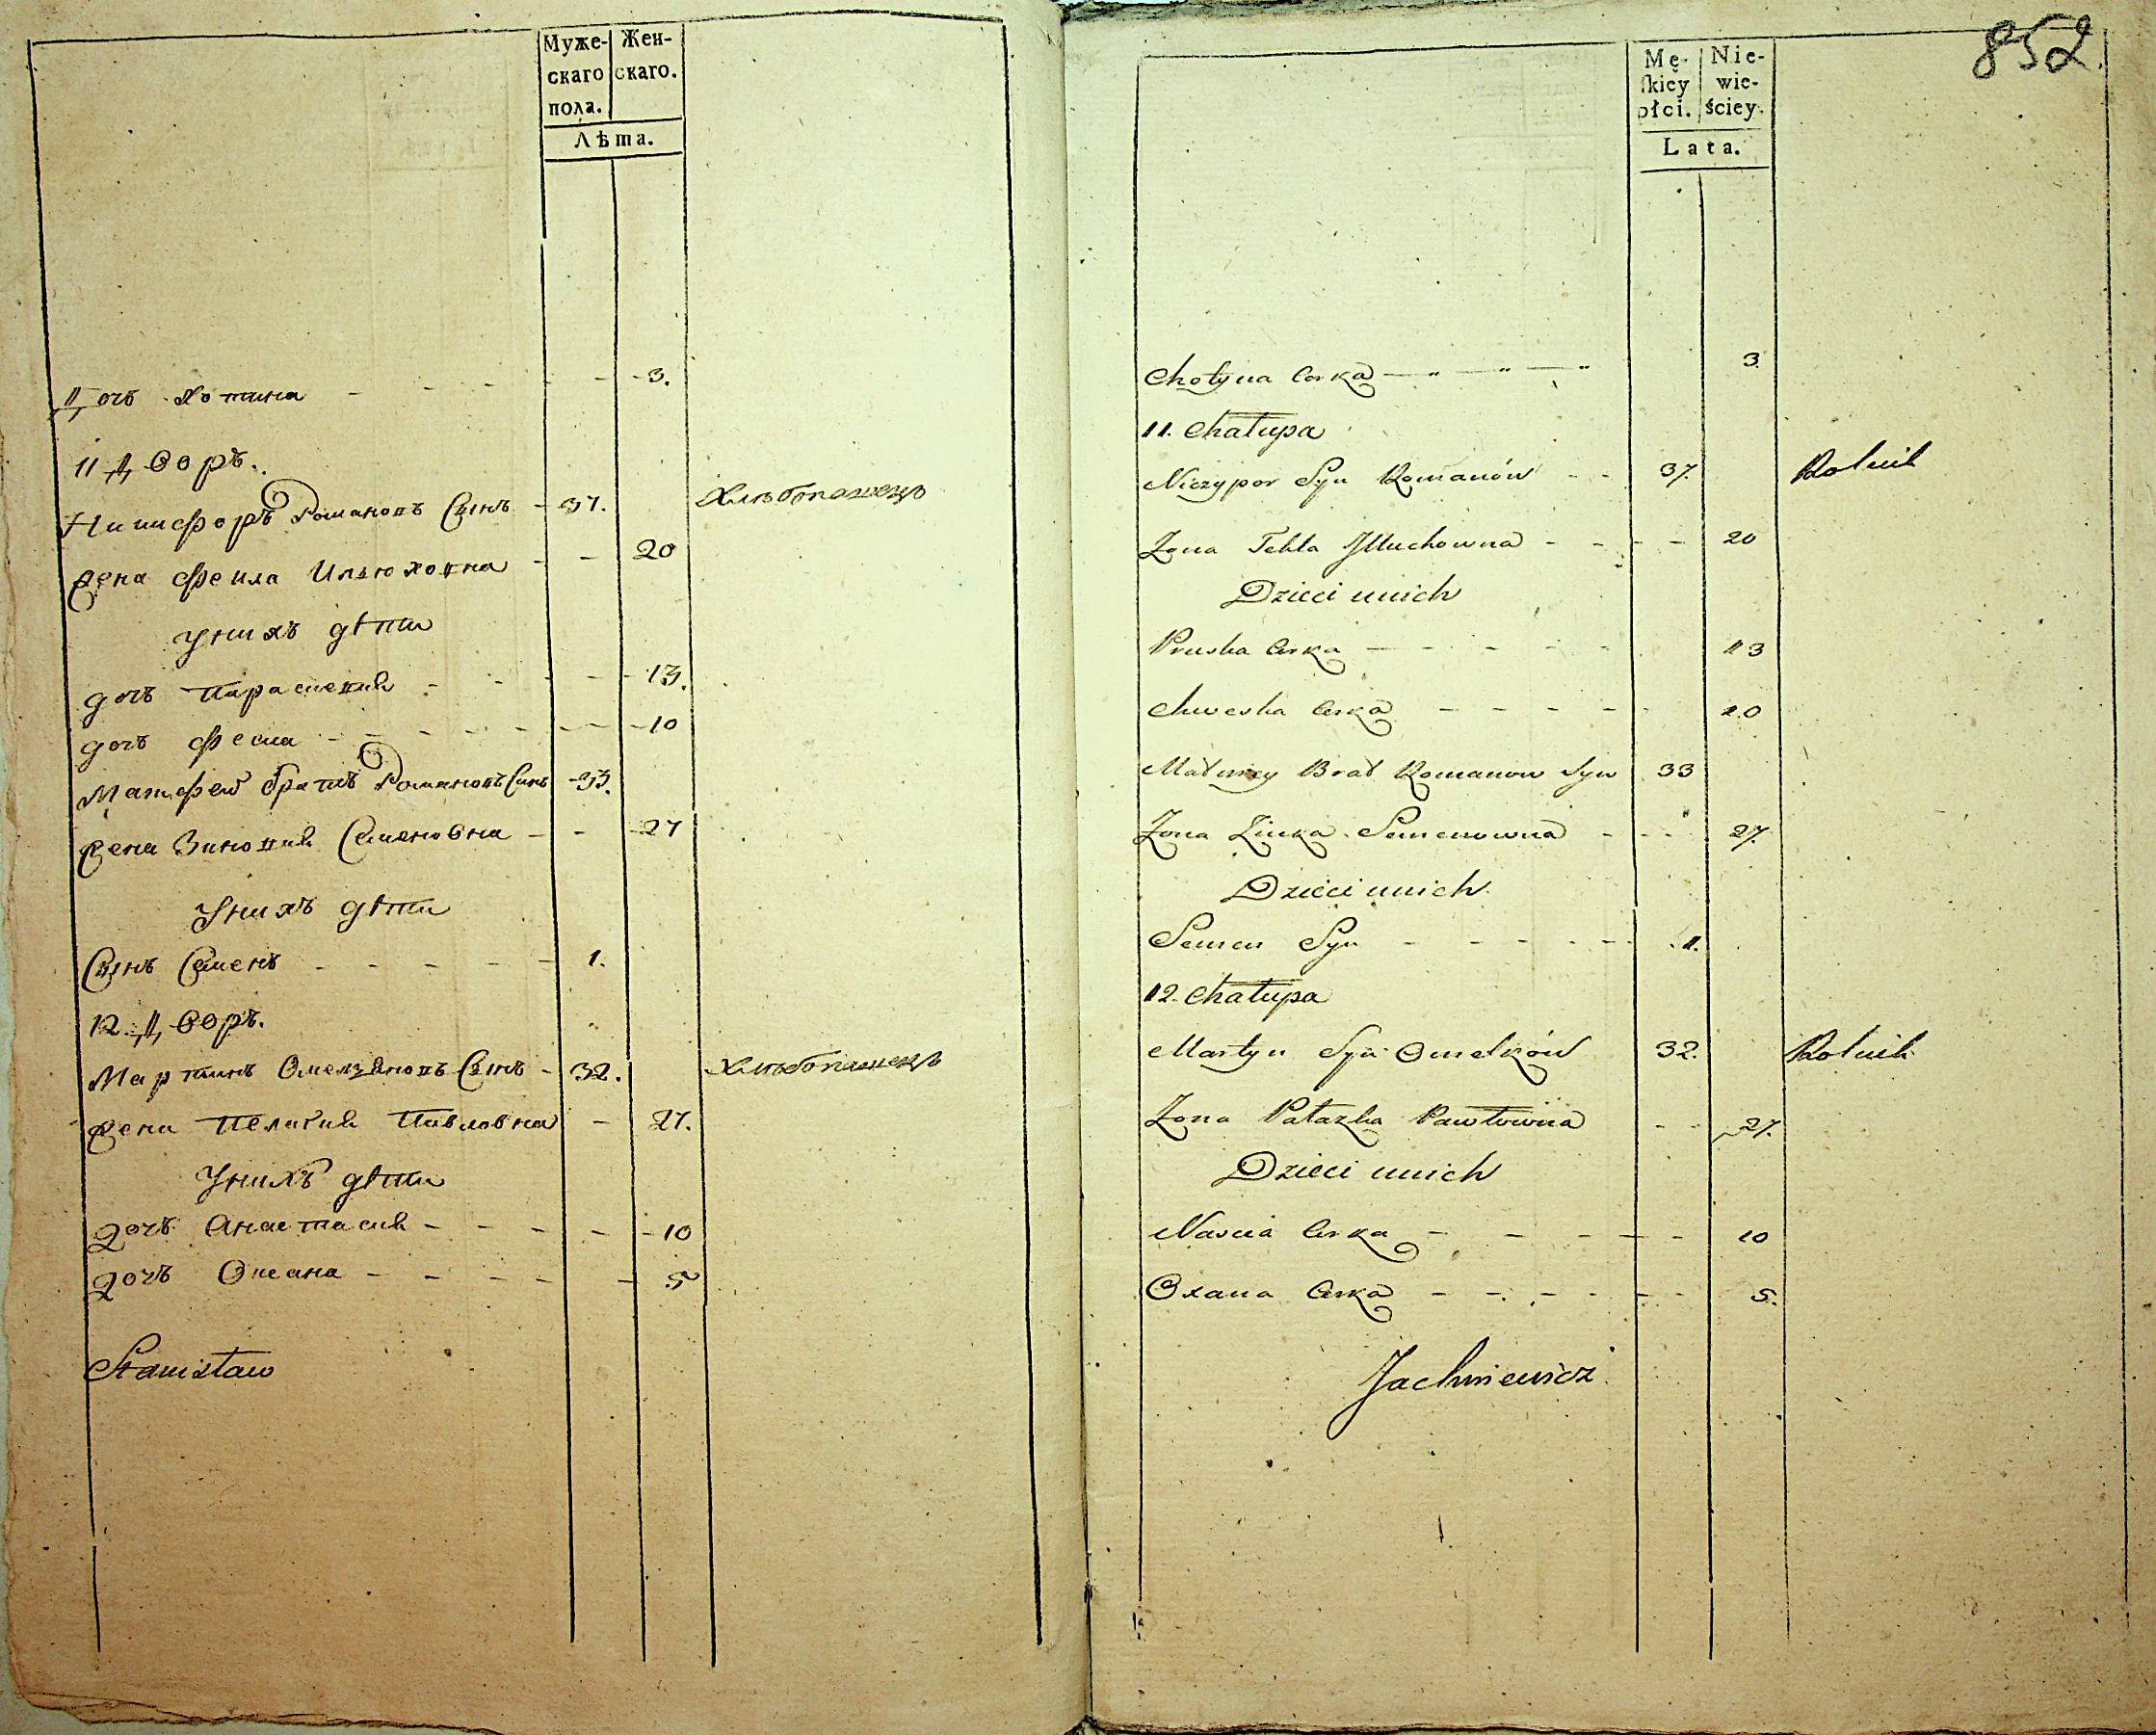 Муже- Жен-
скаго скаго.
пола.
Лѣта.
Дочь Хотина - - - - - 3.
11 Дворъ.
Никифоръ Романовъ Сынъ - 37. Хлѣбопашецъ
Жена Фекла Ильюховна - - 20
У нихъ дѣти
дочь Парасковия - - - - 13.
дочь Феска - - - - - 10
Матфей братъ Романовъ Сынъ - 33.
Жена Зиновия Семеновна - - 27
У нихъ дѣти
Сынъ Семенъ - - - - - 1.
12. Дворъ.
Мартинъ Омельяновъ Сынъ - 32. Хлѣбопашецъ
Жена Пелагия Павловна - 27.
У нихъ дѣти
дочь Анастасия - - - - 10
дочь Оксана - - - - - 5
Stanisław
852.
Mę- Nie-
skiey wie-
płci. ściey.
Lata.
Chotyna Corka — " — " — " 3.
11. Chałupa
Niczypor Syn Romanów - - 37. Rolnik
Zona Tekla Illuchowna - - - - 20
Dzieci unich
Pruska Corka - - - - - 13
Chweska Corka - - - - - 10
Matwiey Brat Romanow Syn 33
Zona Zinka Semenowna - - - 27.
Dzieci unich
Semen Syn - - - - - - 1.
12. Chałupa
Martyn Syn Omelków 32. Rolnik
Zona Pałazka Pawłowna - - 27.
Dzieci unich
Nascia Corka - - - - - 10
Oxana Corka - - - - - - 5.
Jachniewicz